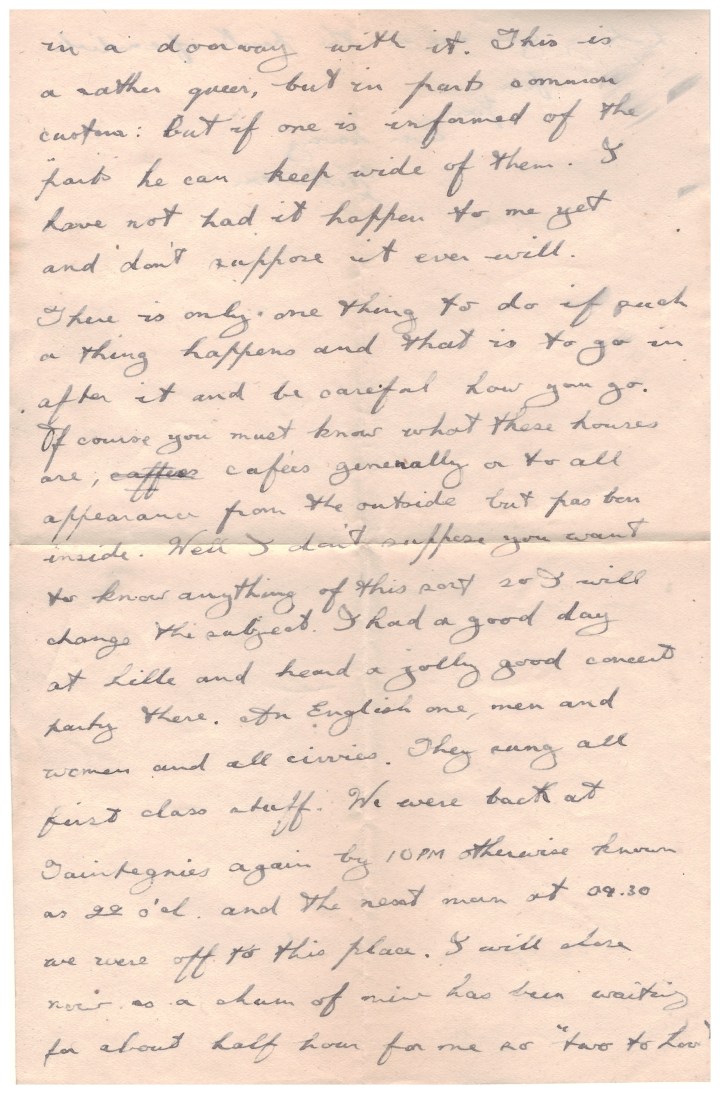 in a doorway with it. This is
a rather queer, but in parts common
custom: but if one is informed of the
parts he can keep wide of them. I
have not had it happen to me yet
and don't suppose it ever will.
There is only one thing to do if such
a thing happens and that is to go in
after it and be careful how you go.
Of course you must know what these houses
are, caffiees cafées generally or to all
appearance from the outside but
inside. Well I don't suppose you want
to know anything of this sort so I will
change the subject. I had a good day
at Lille and heard a jolly good concert
party there. An English one, men and
women and all civvies. They sung all
first class stuff. We were back at
Taintegnies again by 10PM otherwise known
as 22 o'cl. and the next morn at 09.30
we were off to this place. I will close
now as a chum of mine has been waiting
for about half hour for me so "two to